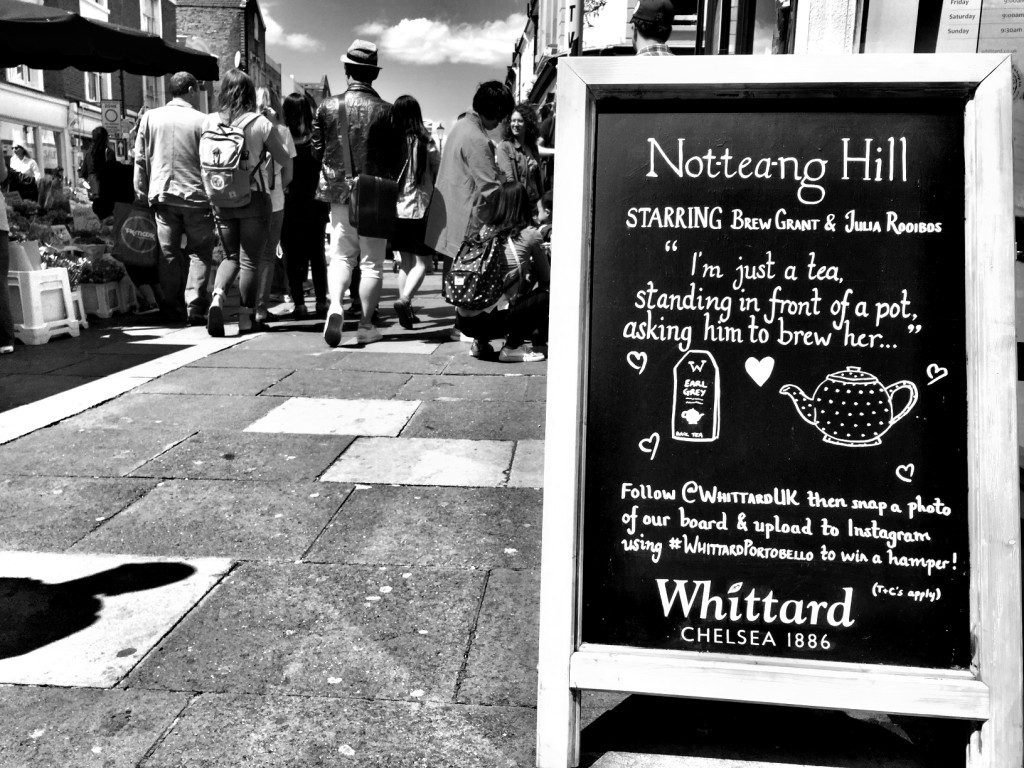 Friday
Saturday
Sunday 9:30am
Not-tea-ng Hill
STARRING BREW GRANT & JULIA ROOIBOS
"I'm just a tea,
standing in front of a pot,
asking him to brew her..."
W
EARL
GREY
Follow @WHITTARDUK then snap a photo
of our board & upload to Instagram
using #WHITTARDPORTOBELLO to win a hamper!
(T+C's apply)
Whittard
CHELSEA 1886